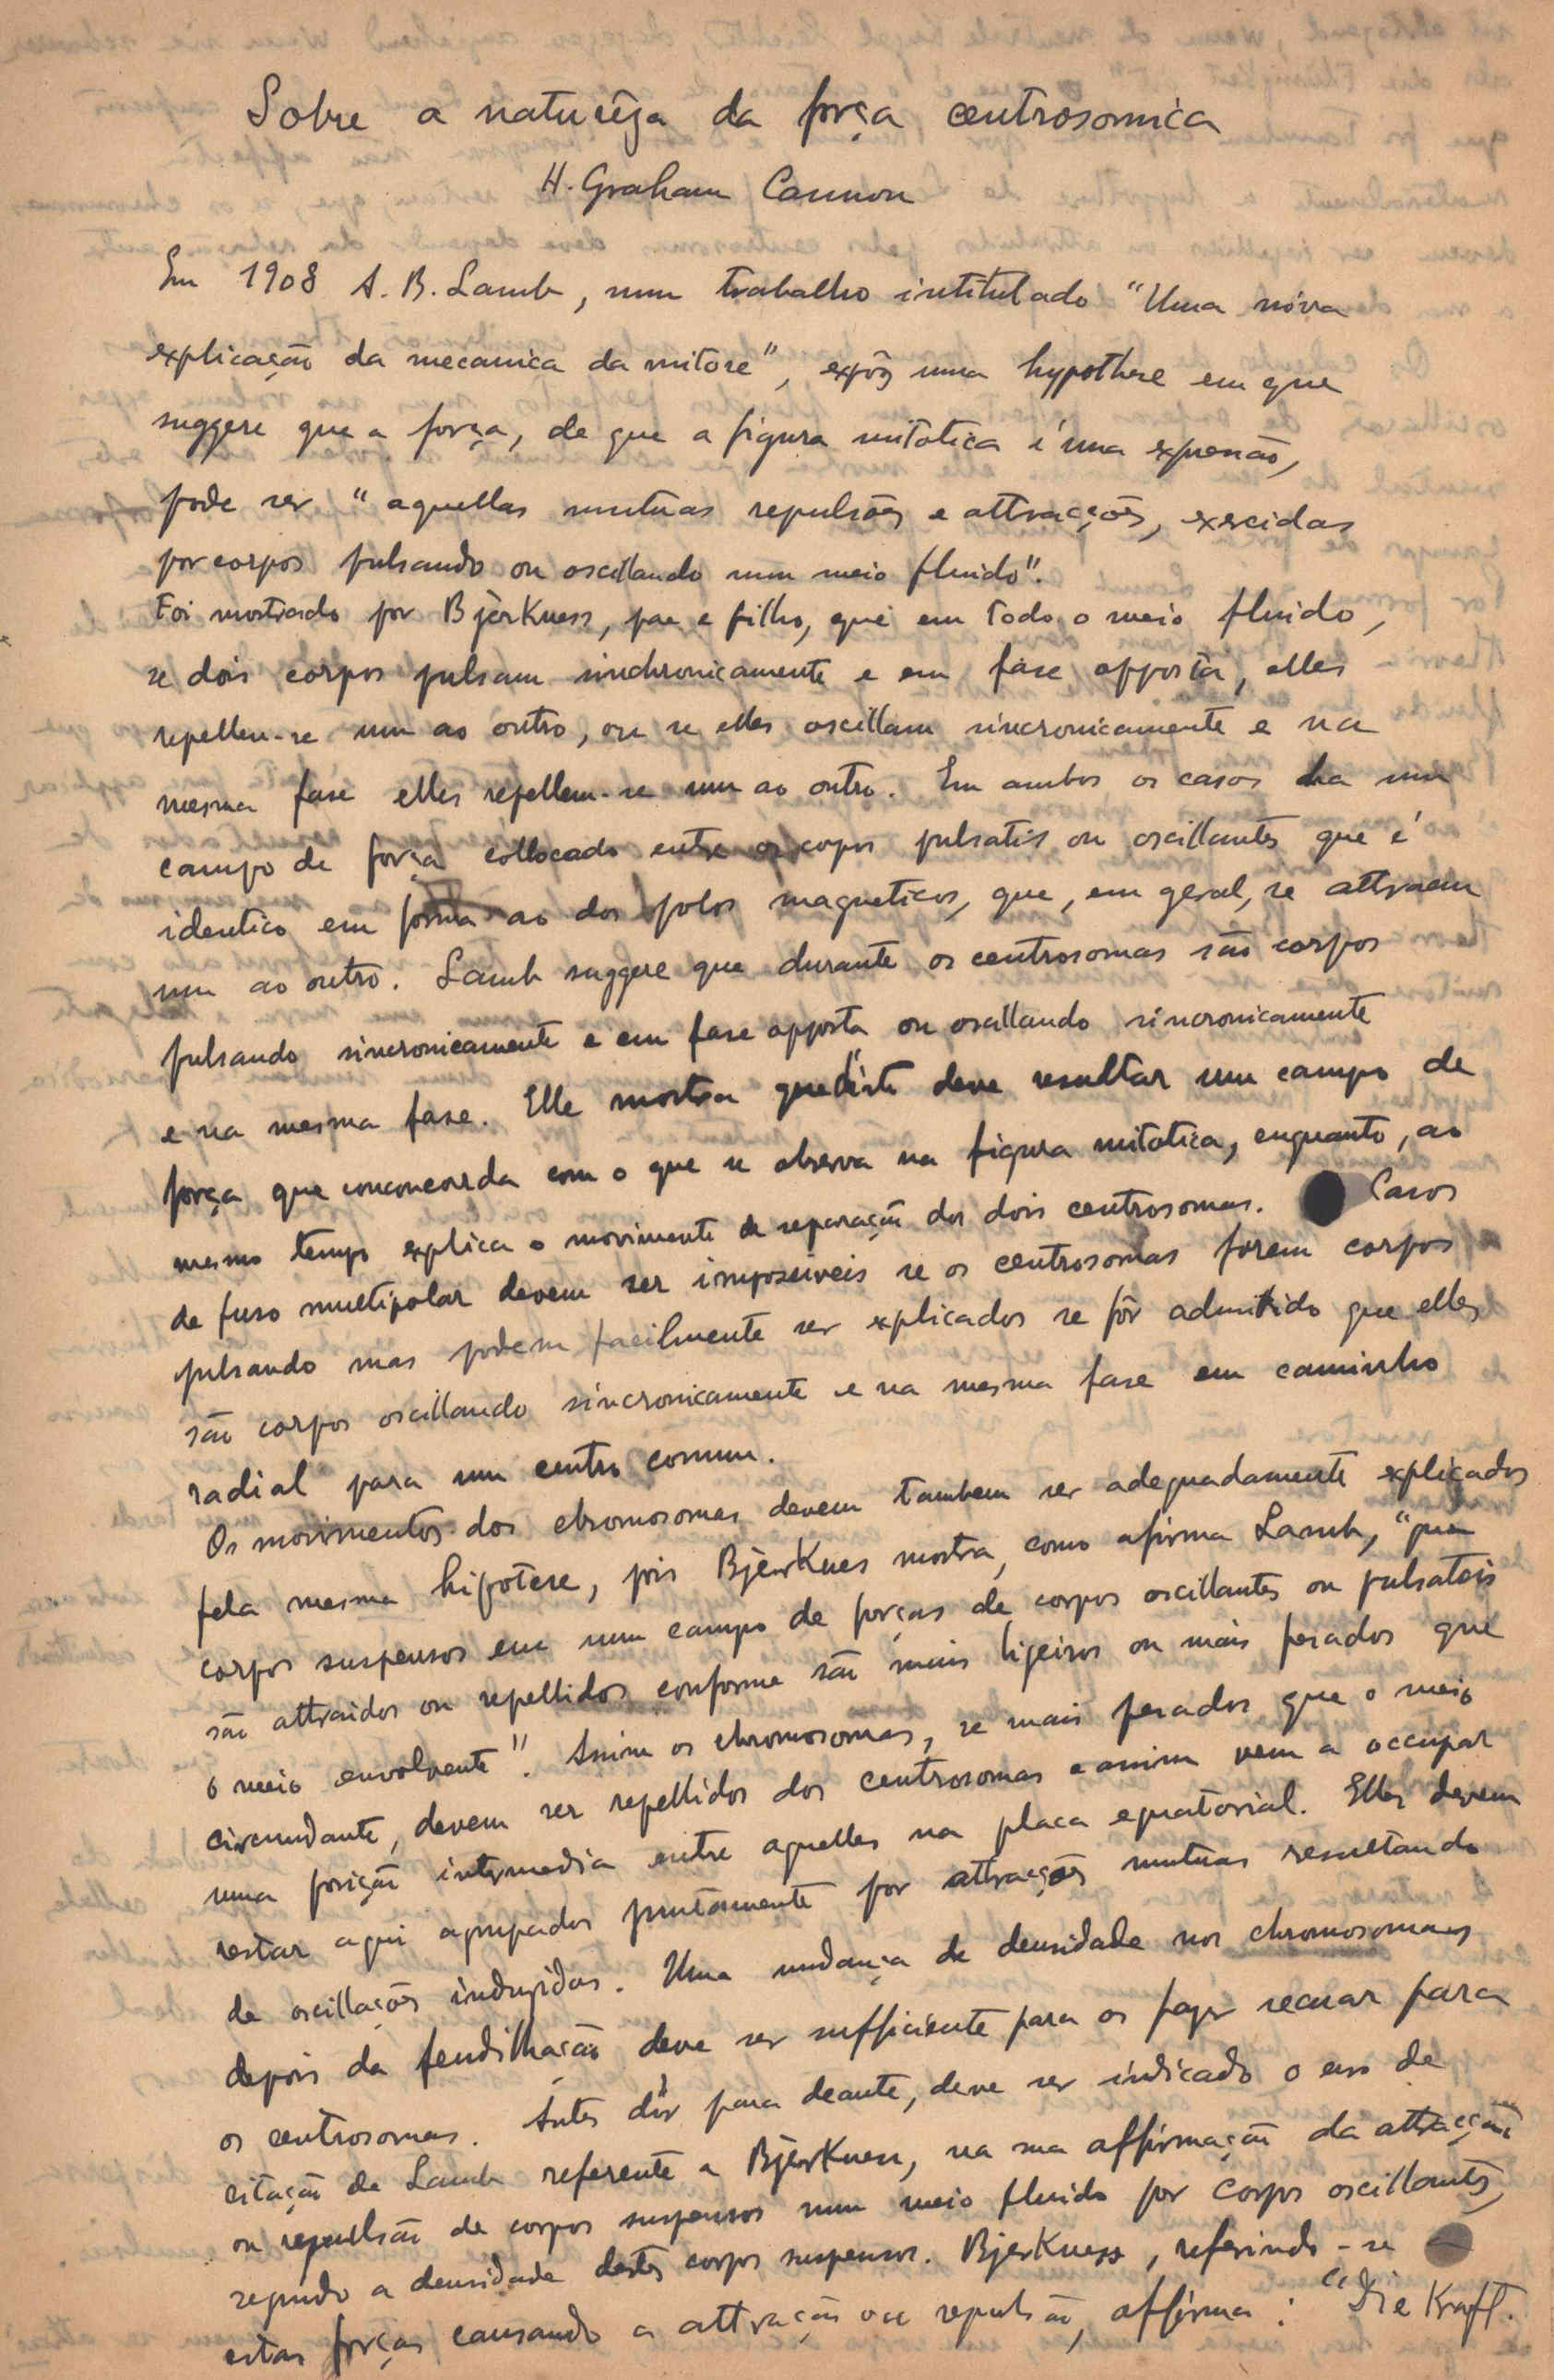 Sobre a naturêza da força centrosomica
H. Graham Cannon
Em 1908 A. B. Lamb, num trabalho intitulado "Uma nóva
explicação da mecanica da mitose", expôz uma hypothese em que
suggere que a força, de que a figura mitotica é uma expressão,
pode ser "aquellas mutúas repulsões e attracções, exercidas
por corpos pulsando ou oscillando num meio fluido".
Foi mostrado por Bjerkness, pae e filho, que em todo o meio fluido,
se dois corpos pulsam sinchronicamente e em fáse opposta, elles
repellem-se um ao outro, ou se elles oscillam sincronicamente e na
mesma fase elles repellem-se um ao outro. Em ambos os casos ha um
campo de força collocado entre os corpos pulsatis ou oscillantes que é
identico em forma ao dos polos magneticos, que, em geral, se attraem
um ao outro. Lamb suggere que durante os centrosomas são corpos
pulsando sincronicamente e em fase opposta ou oscillando sincronicamente
e na mesma fase. Elle mostra que d'isto deve resultar um campo de
força que conconcorda com o que se observa na figura mitotica, enquanto, ao
mesmo tempo explica o movimento de separação dos dois centrosomas. Casos
de fuso multipolar devem ser impossiveis se os centrosomas forem corpos
pulsando mas podem facilmente ser explicados se fôr admitido que elles
são corpos oscillando sincronicamente e na mesma fase em caminho
radial para um centro comum.
Os movimentos dos chromosomas devem tambem ser adequadamente explicados
pela mesma hipotese, pois Bjerknes mostra, como afirma Lamb, "que
corpos suspensos em num campo de forças de corpos oscillantes ou pulsateis
são attraidos ou repellidos conforme são mais ligeiros ou mais pesados que
o meio envolvente". Assim os chromosomas, se mais pesados que o meio
circundante, devem ser repellidos dos centrosomas e assim vem a occupar
uma posição intermedia entre aquelles na placa equatorial. Elles devem
restar aqui agrupados juntamente por attracções mutuas resultando
de oscillações induzidas. Uma mudança de densidade nos chromosomas
depois da fendilhação deve ser sufficiente para os fazer recuar para
os centrosomas. Antes d'ir para deante, deve ser indicado o erro de
citação de Lamb referente a Bjerkness, na sua affirmação da attracção
ou repulsão de corpos suspensos num meio fluido por corpos oscillantes,
segundo a densidade destes corpos suspensos. Bjerkness, referindo-se
estas forças causando a attracção ou repulsão, affirma: "Die Kraft.